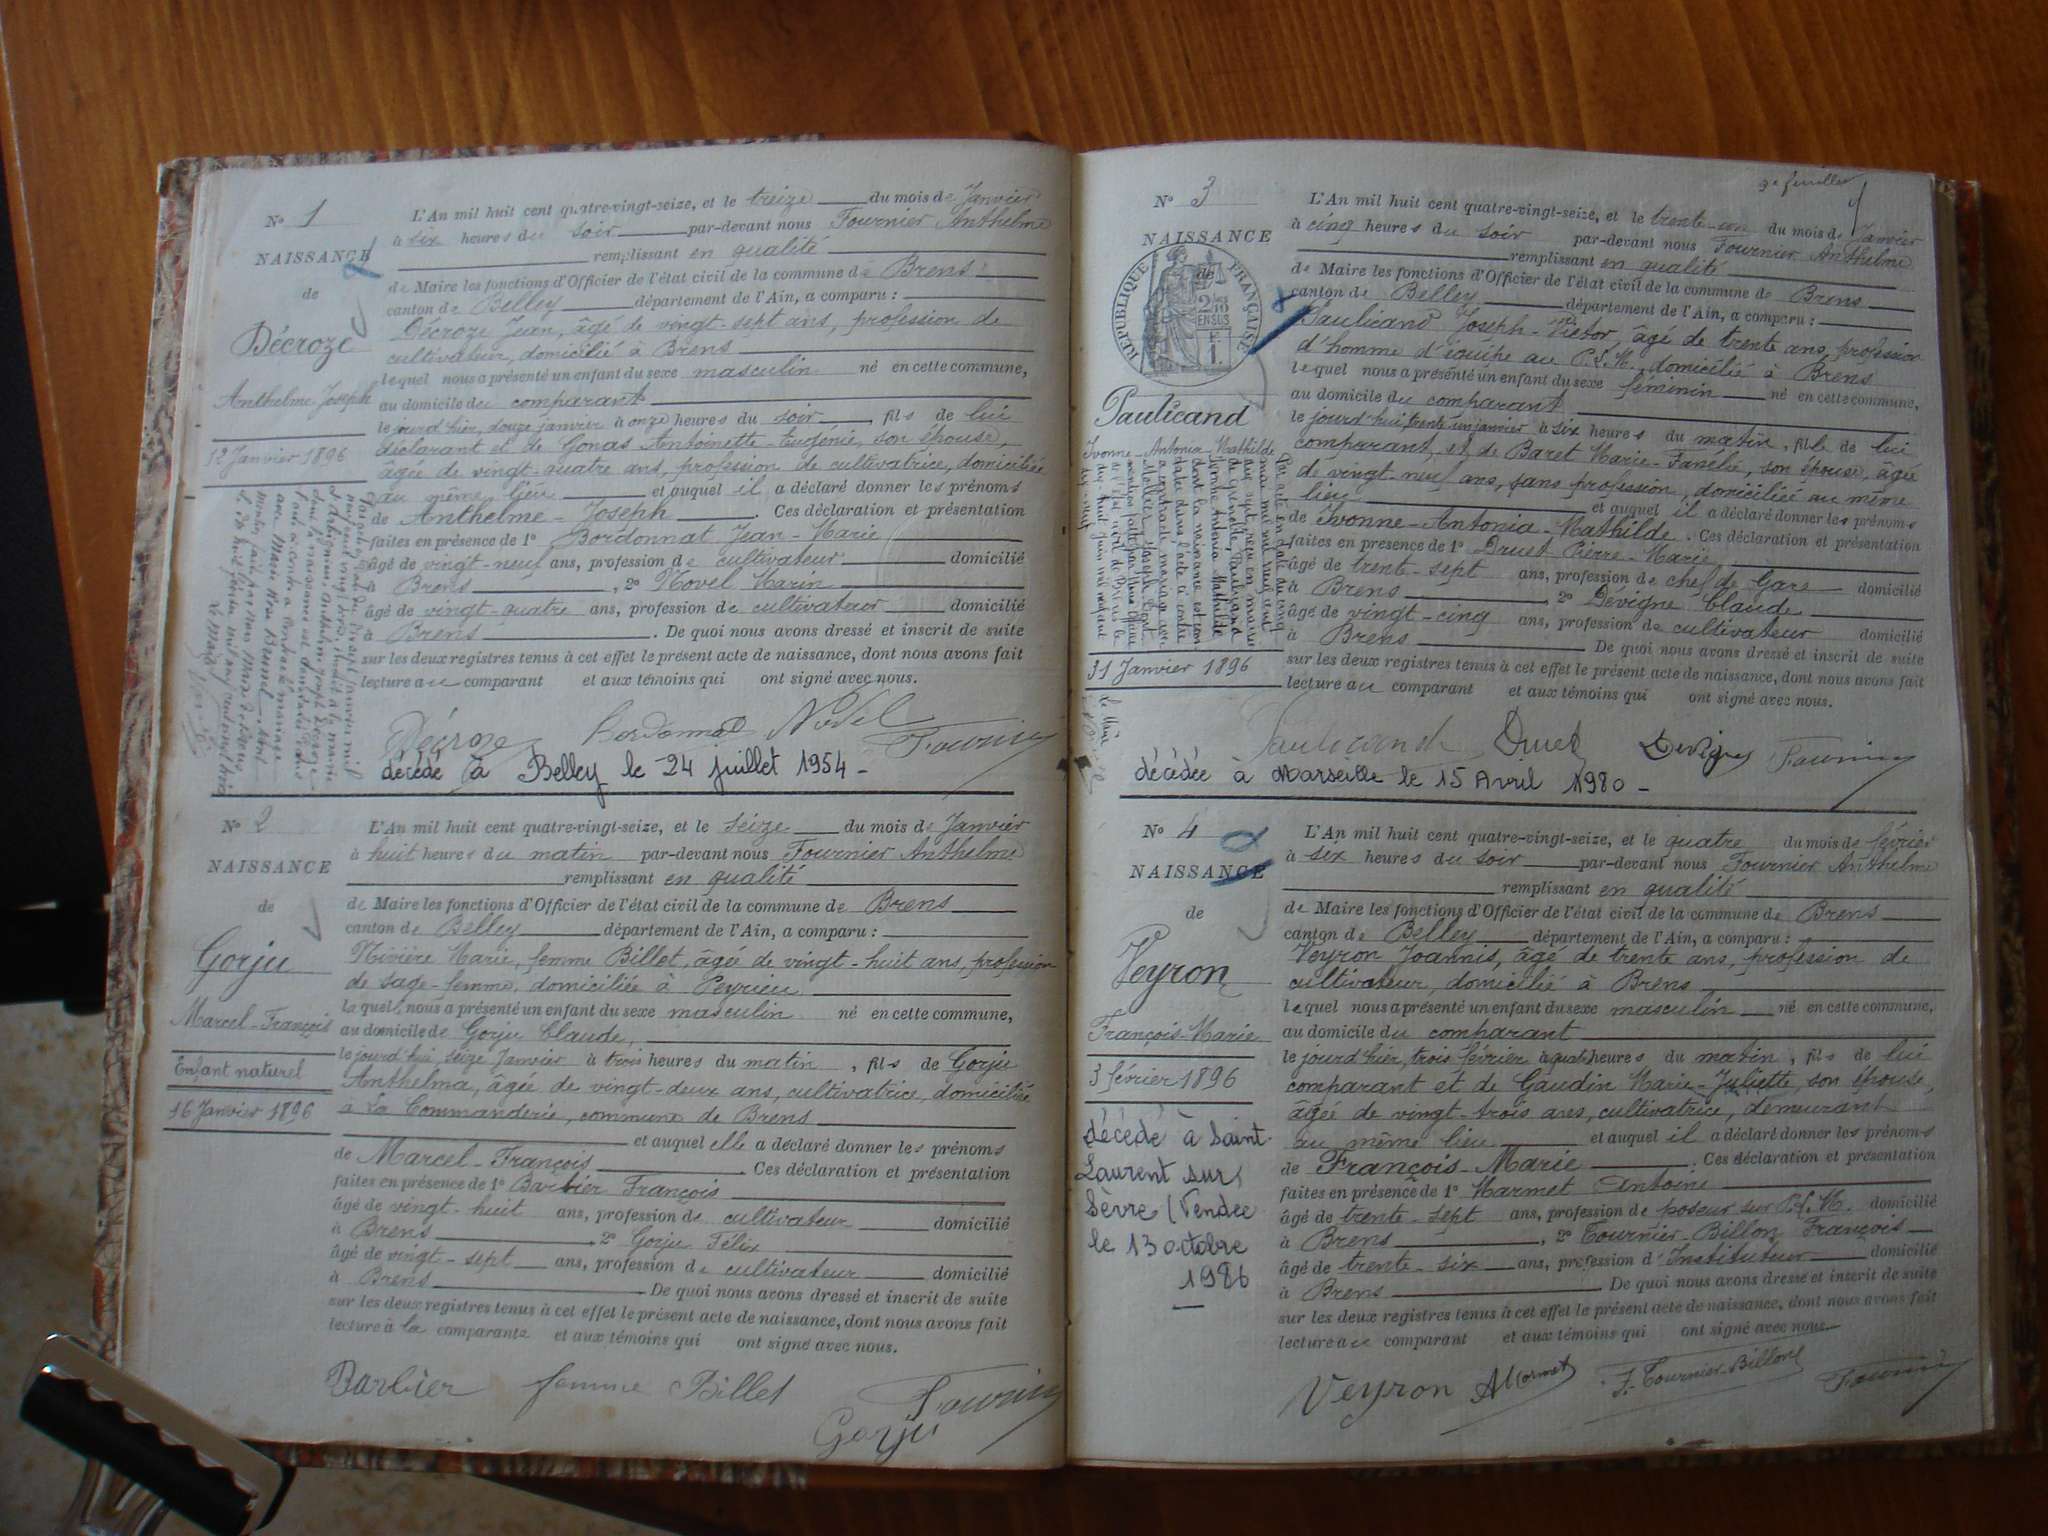 N° 1
NAISSANCE
de
Décroze
Anthelme Joseph
12 Janvier 1896
L'An mil huit cent quatre-vingt-seize, et le treize du mois de Janvier
à six heures du soir par-devant nous Fournier Anthelme
remplissant en qualité
de Maire les fonctions d'Officier de l'état civil de la commune de Brens
canton de Belley département de l'Ain, a comparu :
Décroze Jean, âgé de vingt-sept ans, profession de
cultivateur, domicilié à Brens
lequel nous a présenté un enfant du sexe masculin né en cette commune,
au domicile du comparant
le jourd'hier, douze janvier à onze heures du soir, fils de lui
déclarant et de Gonas Antoinette-Eugénie, son épouse,
âgée de vingt-quatre ans, profession de cultivatrice, domiciliée
au même lieu et auquel il a déclaré donner les prénoms
de Anthelme-Joseph. Ces déclaration et présentation
faites en présence de 1° Bordonnat Jean-Marie
âgé de vingt-neuf ans, profession de cultivateur domicilié
à Brens, 2° Novel Marin
âgé de vingt-quatre ans, profession de cultivateur domicilié
à Brens. De quoi nous avons dressé et inscrit de suite
sur les deux registres tenus à cet effet le présent acte de naissance, dont nous avons fait
lecture au comparant et aux témoins qui ont signé avec nous.
Décroze Bordonnat Novel Fournier
décédé à Belley le 24 juillet 1954 -
N° 2
NAISSANCE
de
Gorju
Marcel-François
Enfant naturel
16 Janvier 1896
L'An mil huit cent quatre-vingt-seize, et le seize du mois de Janvier
à huit heures du matin par-devant nous Fournier Anthelme
remplissant en qualité
de Maire les fonctions d'Officier de l'état civil de la commune de Brens
canton de Belley département de l'Ain, a comparu :
Rivière Marie, femme Billet, âgée de vingt-huit ans, profession
de sage-femme, domiciliée à Peyrieu
lequel, nous a présenté un enfant du sexe masculin né en cette commune,
au domicile de Gorju Claude
le jourd'hui, seize Janvier à trois heures du matin, fils de Gorju
Anthelma, âgée de vingt-deux ans, cultivatrice, domiciliée
à La Commanderie, commune de Brens
et auquel elle a déclaré donner les prénoms
de Marcel-François. Ces déclaration et présentation
faites en présence de 1° Barbier François
âgé de vingt-huit ans, profession de cultivateur domicilié
à Brens, 2° Gorju Félix
âgé de vingt-sept ans, profession de cultivateur domicilié
à Brens De quoi nous avons dressé et inscrit de suite
sur les deux registres tenus à cet effet le présent acte de naissance, dont nous avons fait
lecture à la comparante et aux témoins qui ont signé avec nous.
Barbier femme Billet Fournier
Gorju
2e feuillet
N° 3
NAISSANCE
de
RÉPUBLIQUE FRANÇAISE
Paulicand
Yvonne-Antonia-Mathilde
31 Janvier 1896
L'An mil huit cent quatre-vingt-seize, et le trente-un du mois de Janvier
à cinq heures du soir par-devant nous Fournier Anthelme
remplissant en qualité
de Maire les fonctions d'Officier de l'état civil de la commune de Brens
canton de Belley département de l'Ain, a comparu :
Paulicand Joseph-Victor, âgé de trente ans, profession
d'homme d'équipe au P.L.M. domicilié à Brens
lequel nous a présenté un enfant du sexe féminin né en cette commune,
au domicile du comparant
le jourd'hui, trente un janvier à six heures du matin, fille de lui
comparant, et de Baret Marie-Fanélie, son épouse, âgée
de vingt-neuf ans, sans profession, domiciliée au même
lieu et auquel il a déclaré donner les prénoms
de Yvonne-Antonia-Mathilde. Ces déclaration et présentation
faites en présence de 1° Druet Pierre-Marie
âgé de trente-sept ans, profession de chef de Gare domicilié
à Brens, 2° Dévigne Claude
âgé de vingt-cinq ans, profession de cultivateur domicilié
à Brens De quoi nous avons dressé et inscrit de suite
sur les deux registres tenus à cet effet le présent acte de naissance, dont nous avons fait
lecture au comparant et aux témoins qui ont signé avec nous.
Paulicand Druet Devigne Fournier
décédée à Marseille le 15 Avril 1980 -
N° 4
NAISSANCE
de
Veyron
François-Marie
3 février 1896
décédé à Saint-
Laurent sur
Sèvre (Vendée
le 13 octobre
1986
L'An mil huit cent quatre-vingt-seize, et le quatre du mois de février
à six heures du soir par-devant nous Fournier Anthelme
remplissant en qualité
de Maire les fonctions d'Officier de l'état civil de la commune de Brens
canton de Belley département de l'Ain, a comparu :
Veyron Joannis, âgé de trente ans, profession de
cultivateur, domicilié à Brens
lequel nous a présenté un enfant du sexe masculin né en cette commune,
au domicile du comparant
le jourd'hier, trois février à quat. heures du matin, fils de lui
comparant et de Gaudin Marie-Juliette, son épouse,
âgée de vingt-trois ans, cultivatrice, demeurant
au même lieu et auquel il a déclaré donner les prénoms
de François-Marie. Ces déclaration et présentation
faites en présence de 1° Marmet Antoine
âgé de trente-sept ans, profession de poseur sur P.L.M. domicilié
à Brens, 2° Tournier-Billon François
âgé de trente-six ans, profession d'Instituteur domicilié
à Brens De quoi nous avons dressé et inscrit de suite
sur les deux registres tenus à cet effet le présent acte de naissance, dont nous avons fait
lecture au comparant et aux témoins qui ont signé avec nous.
Veyron AMarmet F. Tournier-Billon Fournier